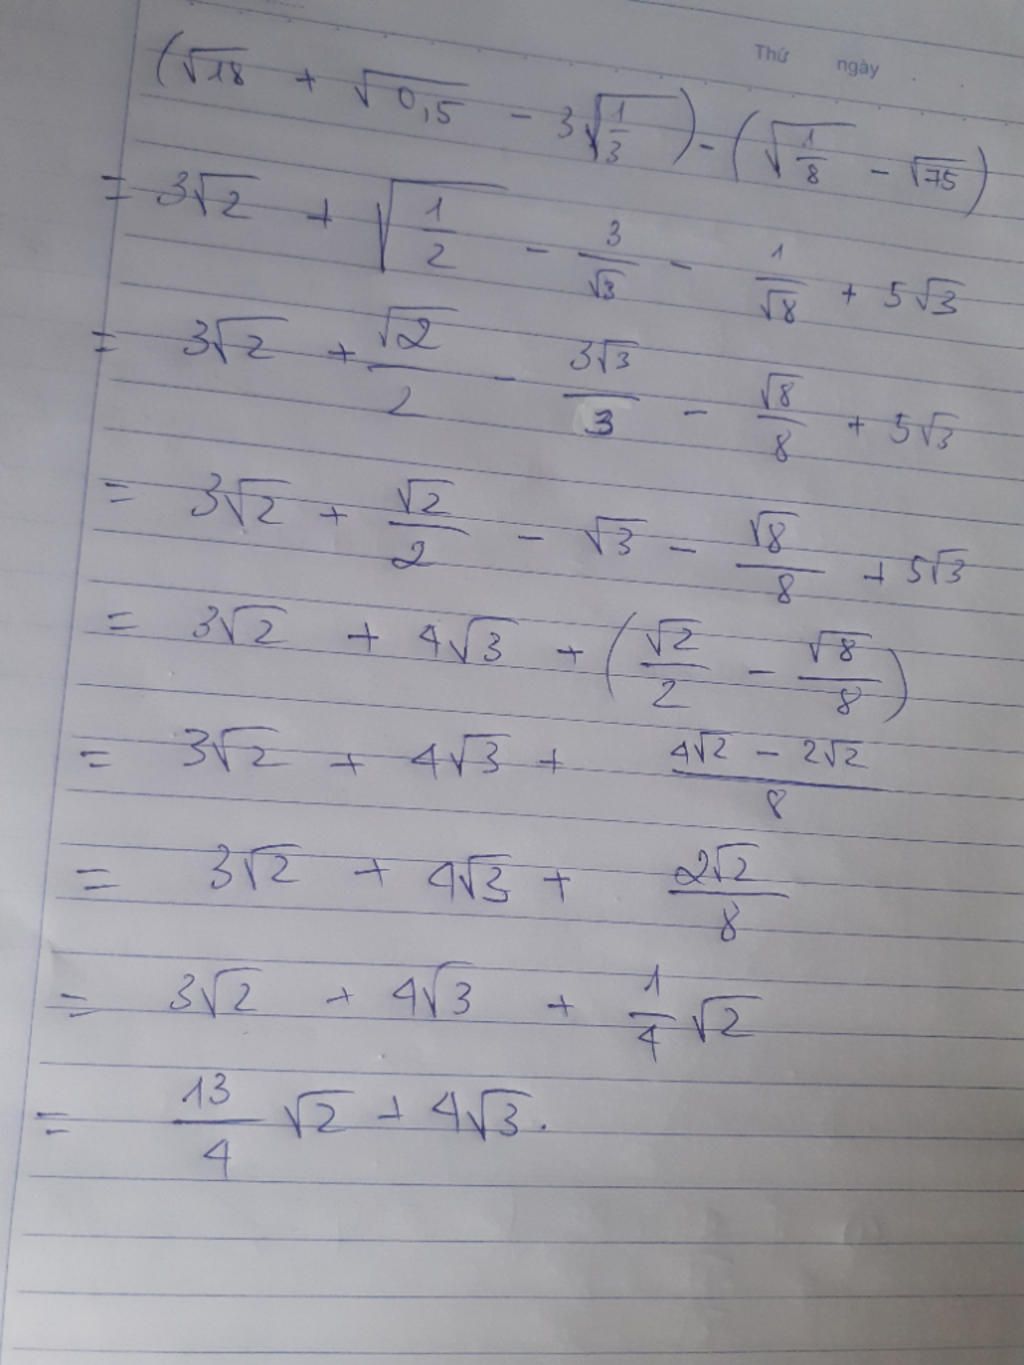 Thứ ngày
(√18 + √0,5 - 3√(1/3)) - (√(1/8) - √75)
= 3√2 + √(1/2) - 3/√3 - 1/√8 + 5√3
= 3√2 + √2/2 - 3√3/3 - √8/8 + 5√3
= 3√2 + √2/2 - √3 - √8/8 + 5√3
= 3√2 + 4√3 + (√2/2 - √8/8)
= 3√2 + 4√3 + (4√2 - 2√2)/8
= 3√2 + 4√3 + 2√2/8
= 3√2 + 4√3 + 1/4 √2
= 13/4 √2 + 4√3.